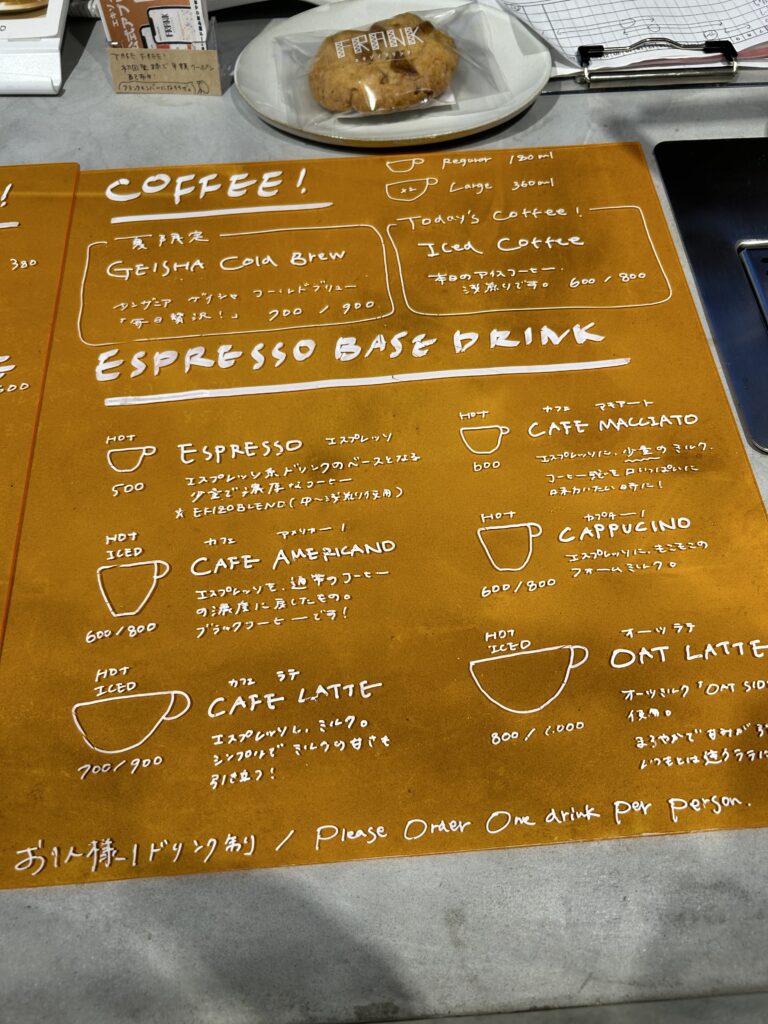 TAKE FREE!
FRANK
COFFEE!
Regular 180ml
x2 Large 360ml
夏限定
GEISHA Cold Brew
タンザニア ゲイシャ コールドブリュー
「毎日贅沢!」 700 / 900
Today's Coffee!
Iced Coffee
本日のアイスコーヒー.
浅煎りです。 600 / 800
380
ESPRESSO BASE DRINK
HOT
500
ESPRESSO エスプレッソ
エスプレッソ系ドリンクのベースとなる
少量で濃厚なコーヒー
HOT
600
カフェ マキアート
CAFE MACCIATO
エスプレッソに、少量のミルク.
コーヒー感を口いっぱいに
味わいたい時に!
HOT
ICED
600/800
カフェ アメリカーノ
CAFE AMERICANO
エスプレッソを、通常のコーヒー
の濃度に戻したもの。
ブラックコーヒーです!
HOT
600/800
カプチーノ
CAPPUCINO
エスプレッソに、もこもこの
フォームミルク。
HOT
ICED
700/900
カフェ ラテ
CAFE LATTE
エスプレッソに、ミルク。
シンプルで ミルクの甘さも
引き立つ!
HOT
ICED
800 / 1.000
オーツ ラテ
OAT LATTE
オーツミルク「OAT SID
使用。
まろやかで甘みが
いつもとは違うラテ
お1人様一1ドリンク制り / Please Order One drink per person.